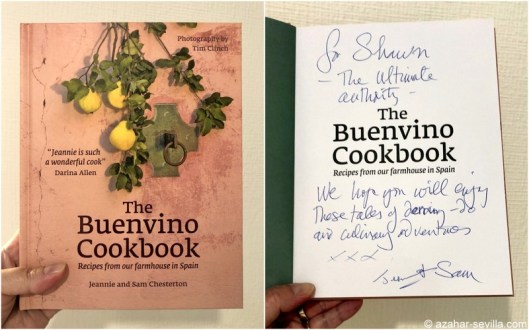 Photography by
Tim Clinch
"Jeannie is such
a wonderful cook"
Darina Allen
The
Buenvino
Cookbook
Recipes from our farmhouse in Spain
Jeannie and Sam Chesterton
for Shawn
- The ultimate
authority -
The
Buenvino
Cookbook
Recipes from our farmhouse in Spain
We hope you will enjoy
these tales of derring-do
and culinary adventures
xxx
Sam
© azahar-sevilla.com